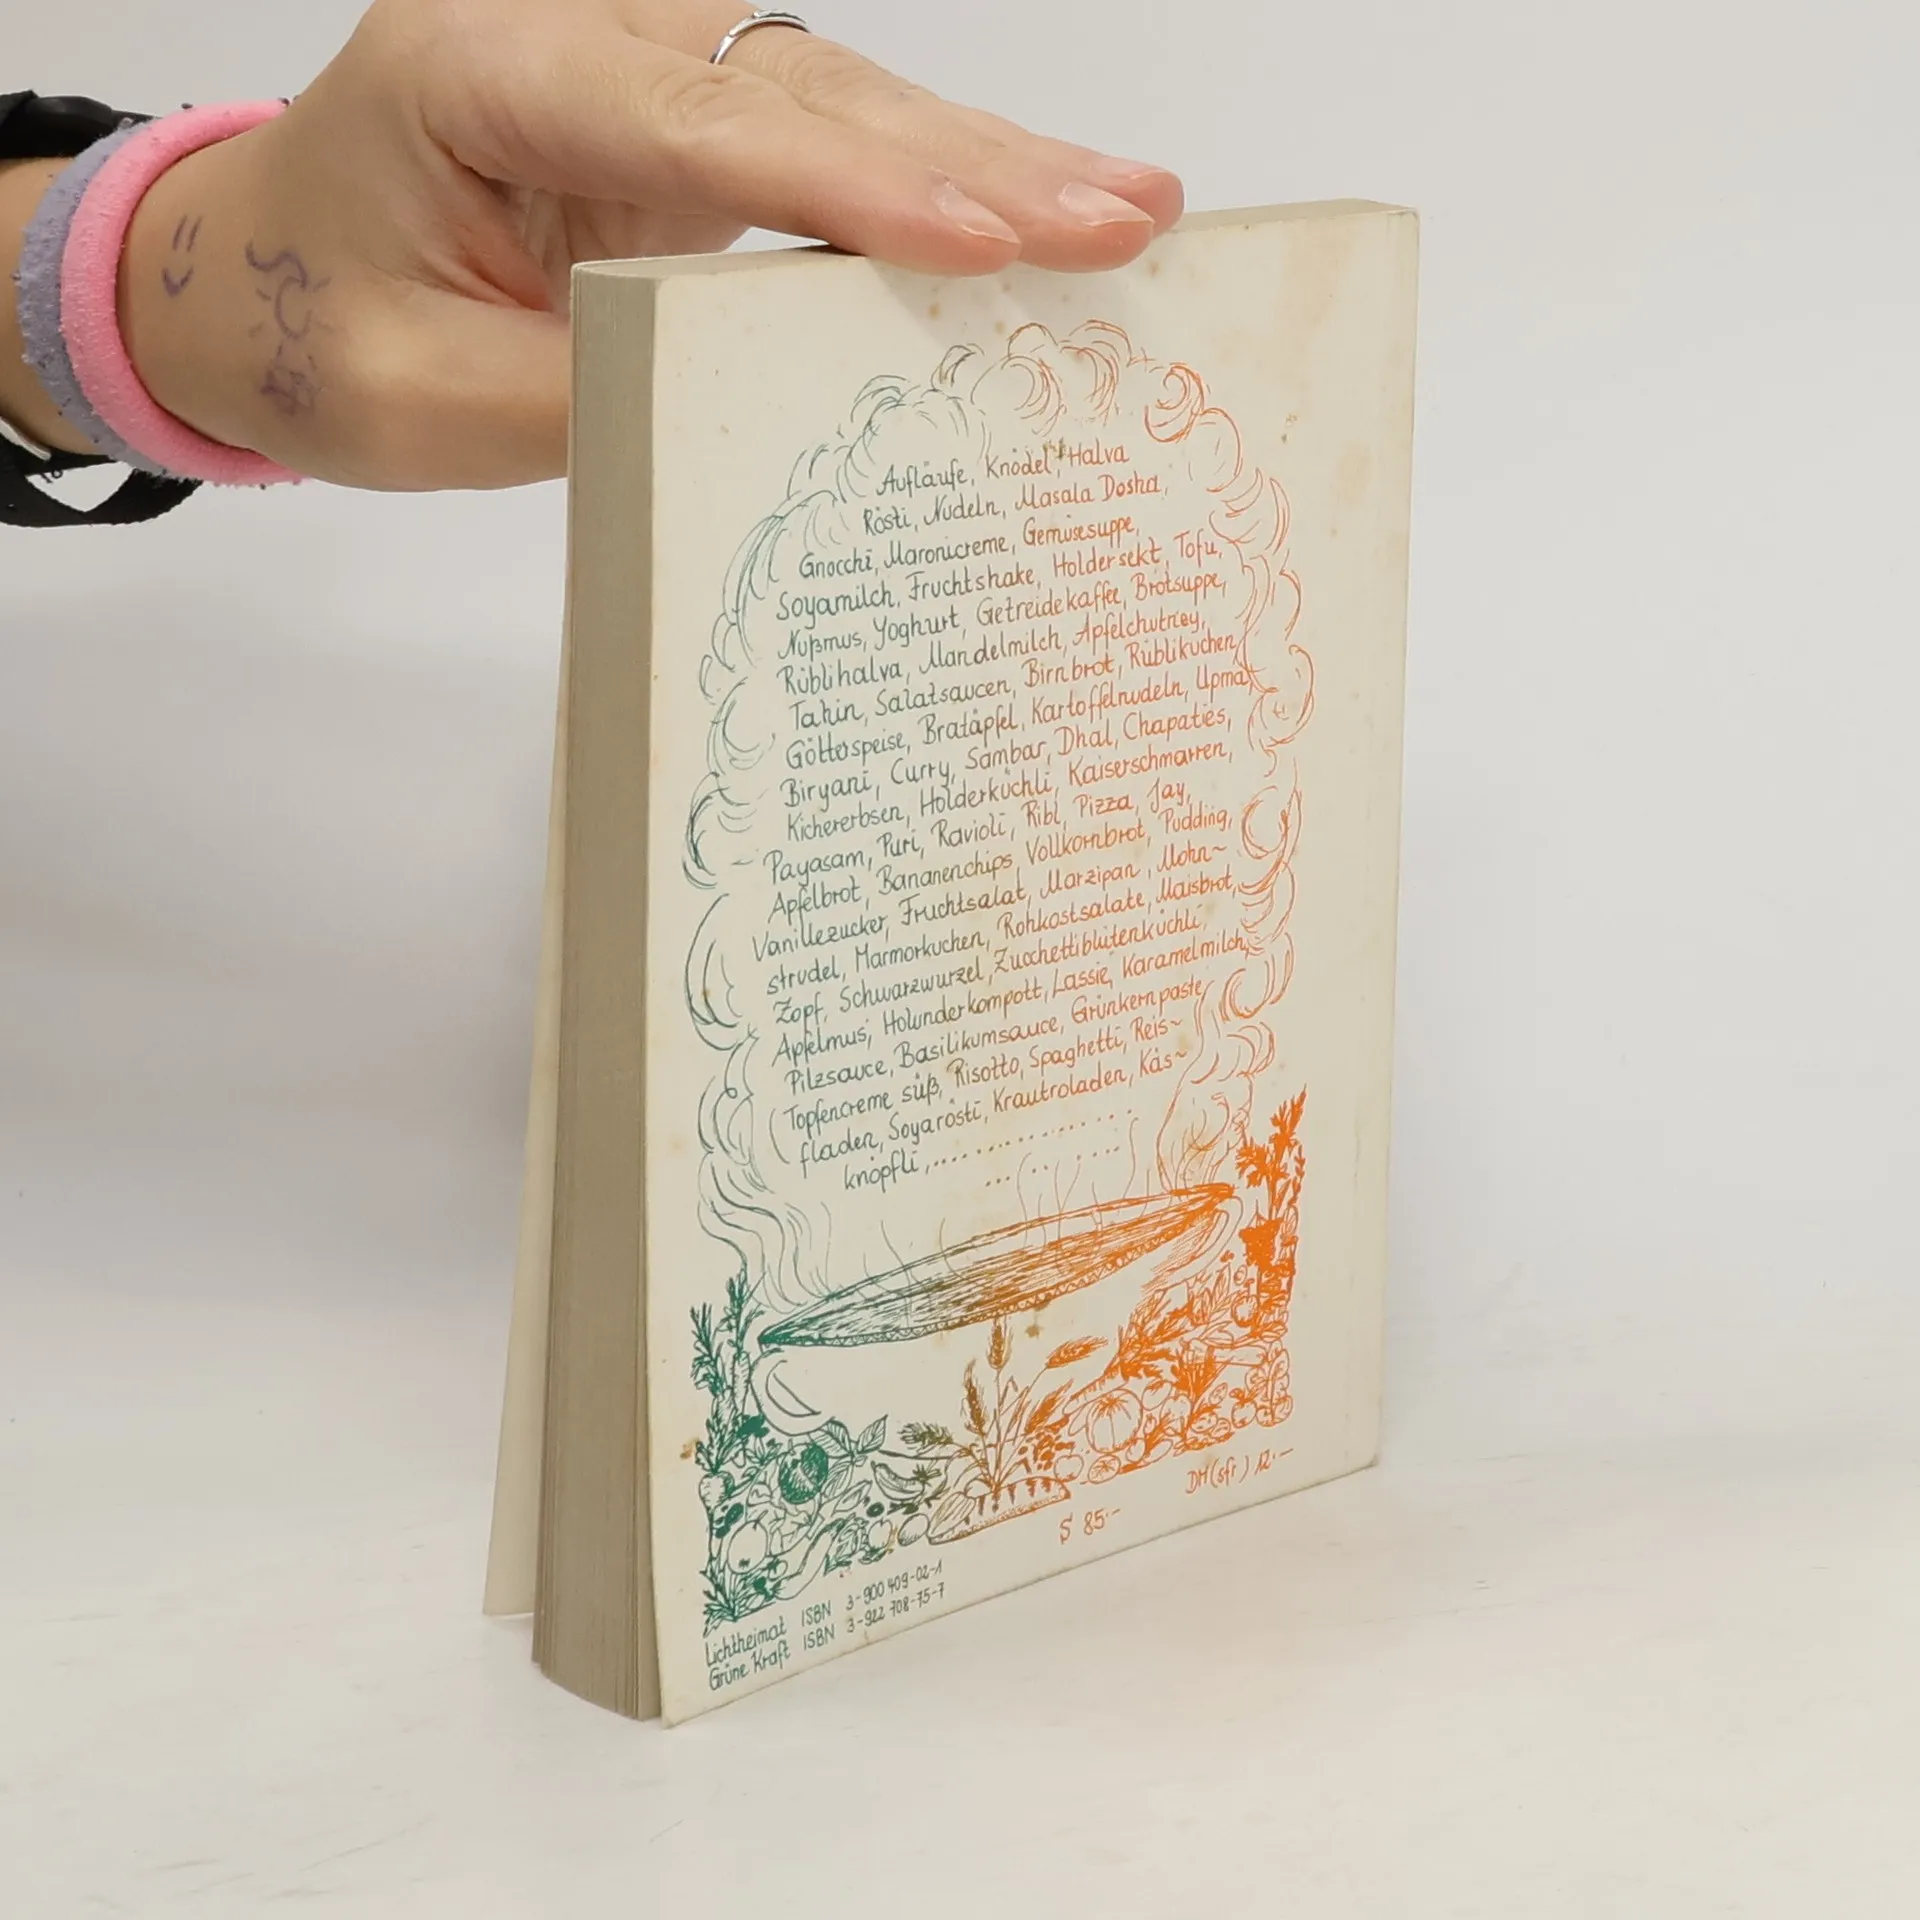 Aufläufe, Knödel, Halva
Rösti, Nudeln, Masala Dosha,
Gnocchi, Maronicreme, Gemüsesuppe,
Soyamilch, Fruchtshake, Holdersekt, Tofu,
Nußmus, Yoghurt, Getreidekaffee, Brotsuppe,
Rüblihalva, Mandelmilch, Apfelchutney,
Tahin, Salatsaucen, Birnbrot, Rüblikuchen,
Götterspeise, Bratäpfel, Kartoffelnudeln, Upma,
Biryani, Curry, Sambar, Dhal, Chapaties,
Kichererbsen, Holderküchli, Kaiserschmarren,
Payasam, Puri, Ravioli, Ribl, Pizza, Jay,
Apfelbrot, Bananenchips, Vollkornbrot, Pudding,
Vanillezucker, Fruchtsalat, Marzipan, Mohn~
strudel, Marmorkuchen, Rohkostsalate, Maisbrot,
Zopf, Schwarzwurzel, Zucchettiblütenküchli,
Apfelmus, Holunderkompott, Lassie, Karamelmilch,
Pilzsauce, Basilikumsauce, Grünkernpaste,
Topfencreme süß, Risotto, Spaghetti, Reis~
fladen, Soyarösti, Krautroladen, Käs~
knöpfli, ....................
DM (sfr) 12.—
S 85.—
Lichtheimat ISBN 3-900 409-02-1
Grüne Kraft ISBN 3-922 708-75-7